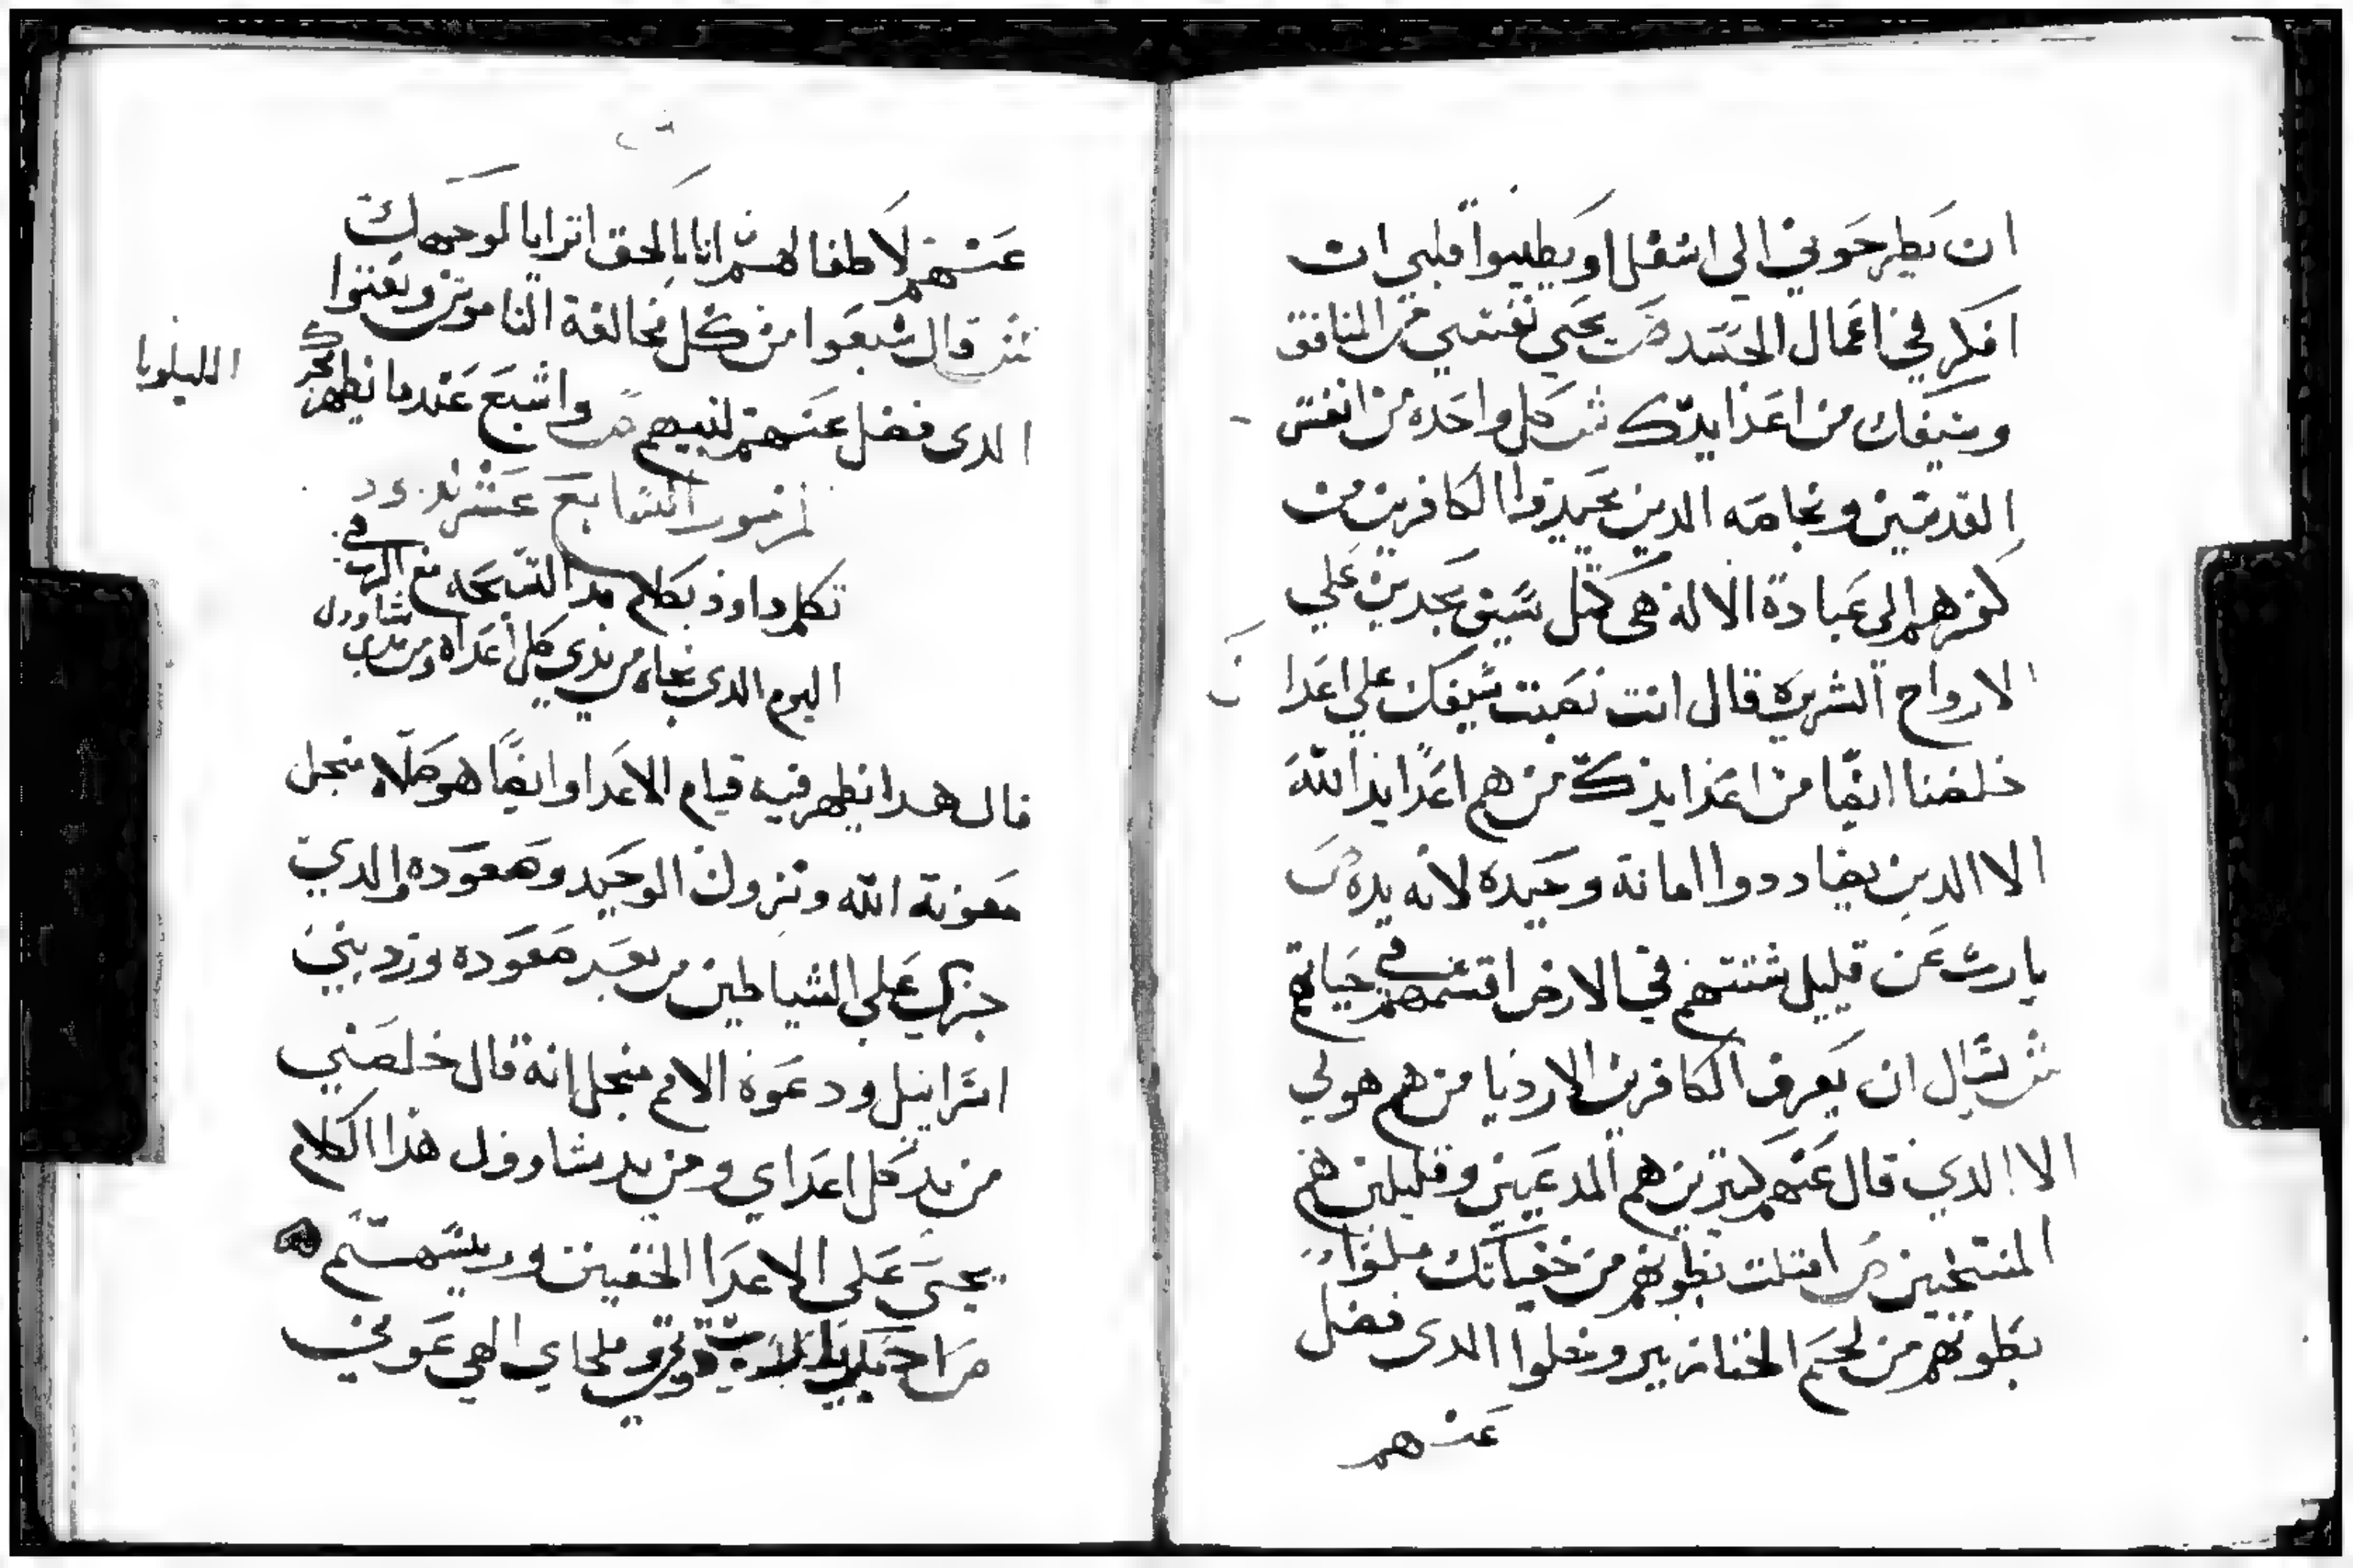 ان يطرحوني الي اسفل او يطيبوا قلبي ان
افكر في اعمال الجسد ص نجي نفسي من المنافق
وسيفك من اعدا يدك ش كل واحده من انفس
القديسين وبخاصه الدين يجيدوا الكافرين من
كفرهم الي عبادة الاله هي كمثل سيف يجدبن علي
الارواح الشريره قال انت نصبت سيفك علي اعدا
خلصنا ايضا من اعدا يدك من هم اعدا يد الله
الا الدين يضاددوا امانة وحيده لانه يده ص
يارب عن قليل شتتهم في الارض اقسمهم في حياتهم
ش يسال ان يعرف الكافرين الارديا من هم هولي
الا الدي قال عنهم كتيرين هم المدعيين وقليلين هم
المنتخبين ص امتلت بطونهم من خفياتك ملوا
بطونهم من لحم الخنازير وخلوا الدى فضل
عنهم
عنهم لاطفالهم انا بالحق اترايا لوجهك
ش قال شبعوا من كل مخالفة الناموس وبقوا
الدى فضل عنهم لبنيهم ص واشبع عندما يظهر مجدك
الليلويا
المزمور السابع عشر لداود
تكلم داود بكلام هدا التسبحه مع الرب في
اليوم الدي نجاه من يدي كل اعداه ومن يدي شاوول
قال هدا يظهر فيه قيام الاعدا وايضا هو صلاه منجل
معونة الله ونزول الوحيد وصعوده والدي
جري علي الشياطين من بعد صعوده ورد بني
اسراييل ودعوة الامم منجل انه قال خلصني
من يد كل اعداي ومن يد شاوول هدا الكلام
يجي علي الاعدا الخفيين ورييسهم
ص احبك يارب قوتي وملجاي الهي عوني